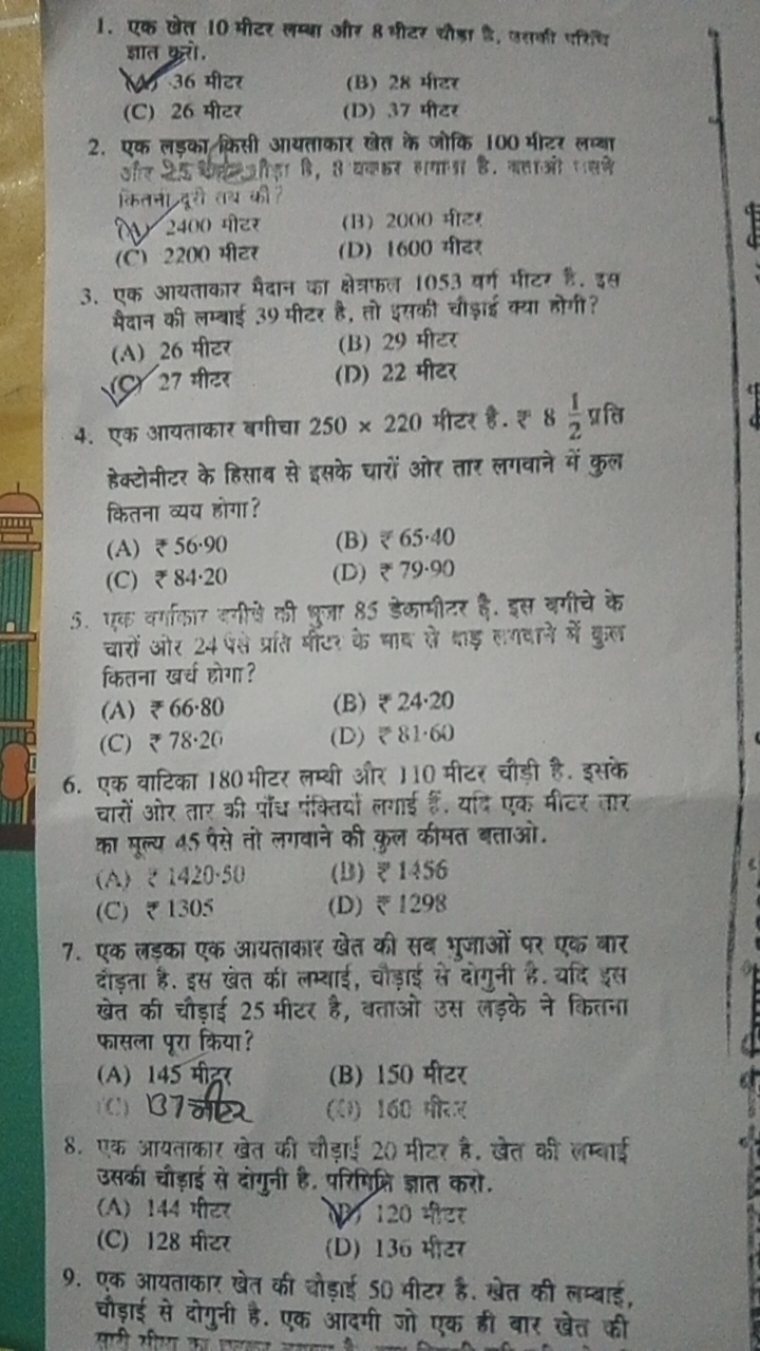 1. एक खेत 10 मीटर लम्बा और 8 मीटर चौड़ा है, उसकी परिधि
ज्ञात करो.
(A) 36 मीटर (B) 28 मीटर
(C) 26 मीटर (D) 37 मीटर
2. एक लड़का किसी आयताकार खेत के जोकि 100 मीटर लम्बा
और 25 मीटर चौड़ा है, 8 चक्कर लगाता है. बताओ उसने
कितनी दूरी तय की?
(A) 2400 मीटर (B) 2000 मीटर
(C) 2200 मीटर (D) 1600 मीटर
3. एक आयताकार मैदान का क्षेत्रफल 1053 वर्ग मीटर है. इस
मैदान की लम्बाई 39 मीटर है, तो इसकी चौड़ाई क्या होगी?
(A) 26 मीटर (B) 29 मीटर
(C) 27 मीटर (D) 22 मीटर
4. एक आयताकार बगीचा 250 × 220 मीटर है. ₹ 8 1/2 प्रति
हेक्टोमीटर के हिसाब से इसके चारों ओर तार लगवाने में कुल
कितना व्यय होगा?
(A) ₹ 56·90 (B) ₹ 65·40
(C) ₹ 84·20 (D) ₹ 79·90
5. एक वर्गाकार बगीचे की भुजा 85 डेकामीटर है. इस बगीचे के
चारों ओर 24 पैसे प्रति मीटर के भाव से बाड़ लगवाने में कुल
कितना खर्च होगा?
(A) ₹ 66·80 (B) ₹ 24·20
(C) ₹ 78·20 (D) ₹ 81·60
6. एक वाटिका 180 मीटर लम्बी और 110 मीटर चौड़ी है. इसके
चारों ओर तार की पाँच पंक्तियाँ लगाई हैं. यदि एक मीटर तार
का मूल्य 45 पैसे तो लगवाने की कुल कीमत बताओ.
(A) ₹ 1420·50 (B) ₹ 1456
(C) ₹ 1305 (D) ₹ 1298
7. एक लड़का एक आयताकार खेत की सब भुजाओं पर एक बार
दौड़ता है. इस खेत की लम्बाई, चौड़ाई से दोगुनी है. यदि इस
खेत की चौड़ाई 25 मीटर है, बताओ उस लड़के ने कितना
फासला पूरा किया?
(A) 145 मीटर (B) 150 मीटर
(C) 137 मीटर (D) 160 मीटर
8. एक आयताकार खेत की चौड़ाई 20 मीटर है. खेत की लम्बाई
उसकी चौड़ाई से दोगुनी है. परिमिति ज्ञात करो.
(A) 144 मीटर (B) 120 मीटर
(C) 128 मीटर (D) 136 मीटर
9. एक आयताकार खेत की चौड़ाई 50 मीटर है. खेत की लम्बाई,
चौड़ाई से दोगुनी है. एक आदमी जो एक ही बार खेत की